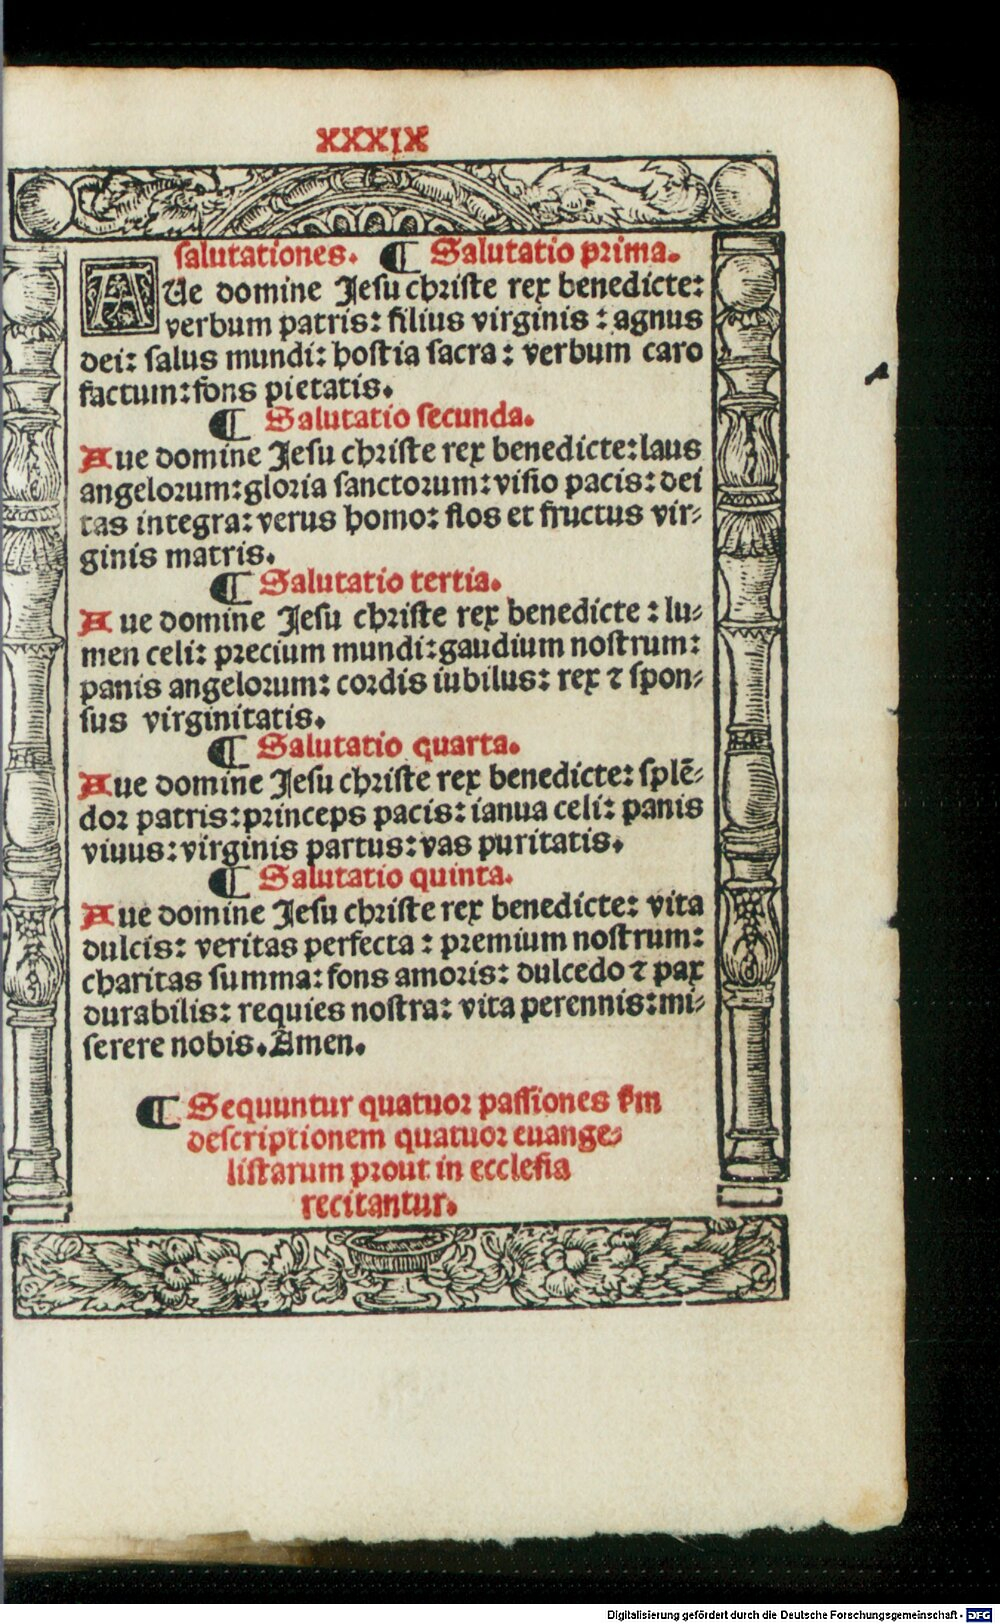 XXXIX
salutationes. ¶ Salutatio prima.
AUe domine Jesu christe rex benedicte:
verbum patris: filius virginis : agnus
dei: salus mundi: hostia sacra : verbum caro
factum: fons pietatis.
¶ Salutatio secunda.
Aue domine Jesu christe rex benedicte: laus
angelorum: gloria sanctorum: visio pacis: dei
tas integra: verus homo: flos et fructus vir⸗
ginis matris.
¶ Salutatio tertia.
Aue domine Jesu christe rex benedicte : lu⸗
men celi: precium mundi: gaudium nostrum:
panis angelorum: cordis iubilus: rex ⁊ spon⸗
sus virginitatis.
¶ Salutatio quarta.
Aue domine Jesu christe rex benedicte: splē⸗
dor patris: princeps pacis: ianua celi: panis
viuus: virginis partus: vas puritatis.
¶ Salutatio quinta.
Aue domine Jesu christe rex benedicte: vita
dulcis: veritas perfecta : premium nostrum:
charitas summa: fons amoris: dulcedo ⁊ pax
durabilis: requies nostra: vita perennis: mi⸗
serere nobis. Amen.
¶ Sequuntur quatuor passiones s̄m
descriptionem quatuor euange⸗
listarum prout in ecclesia
recitantur.
Digitalisierung gefördert durch die Deutsche Forschungsgemeinschaft - DFG